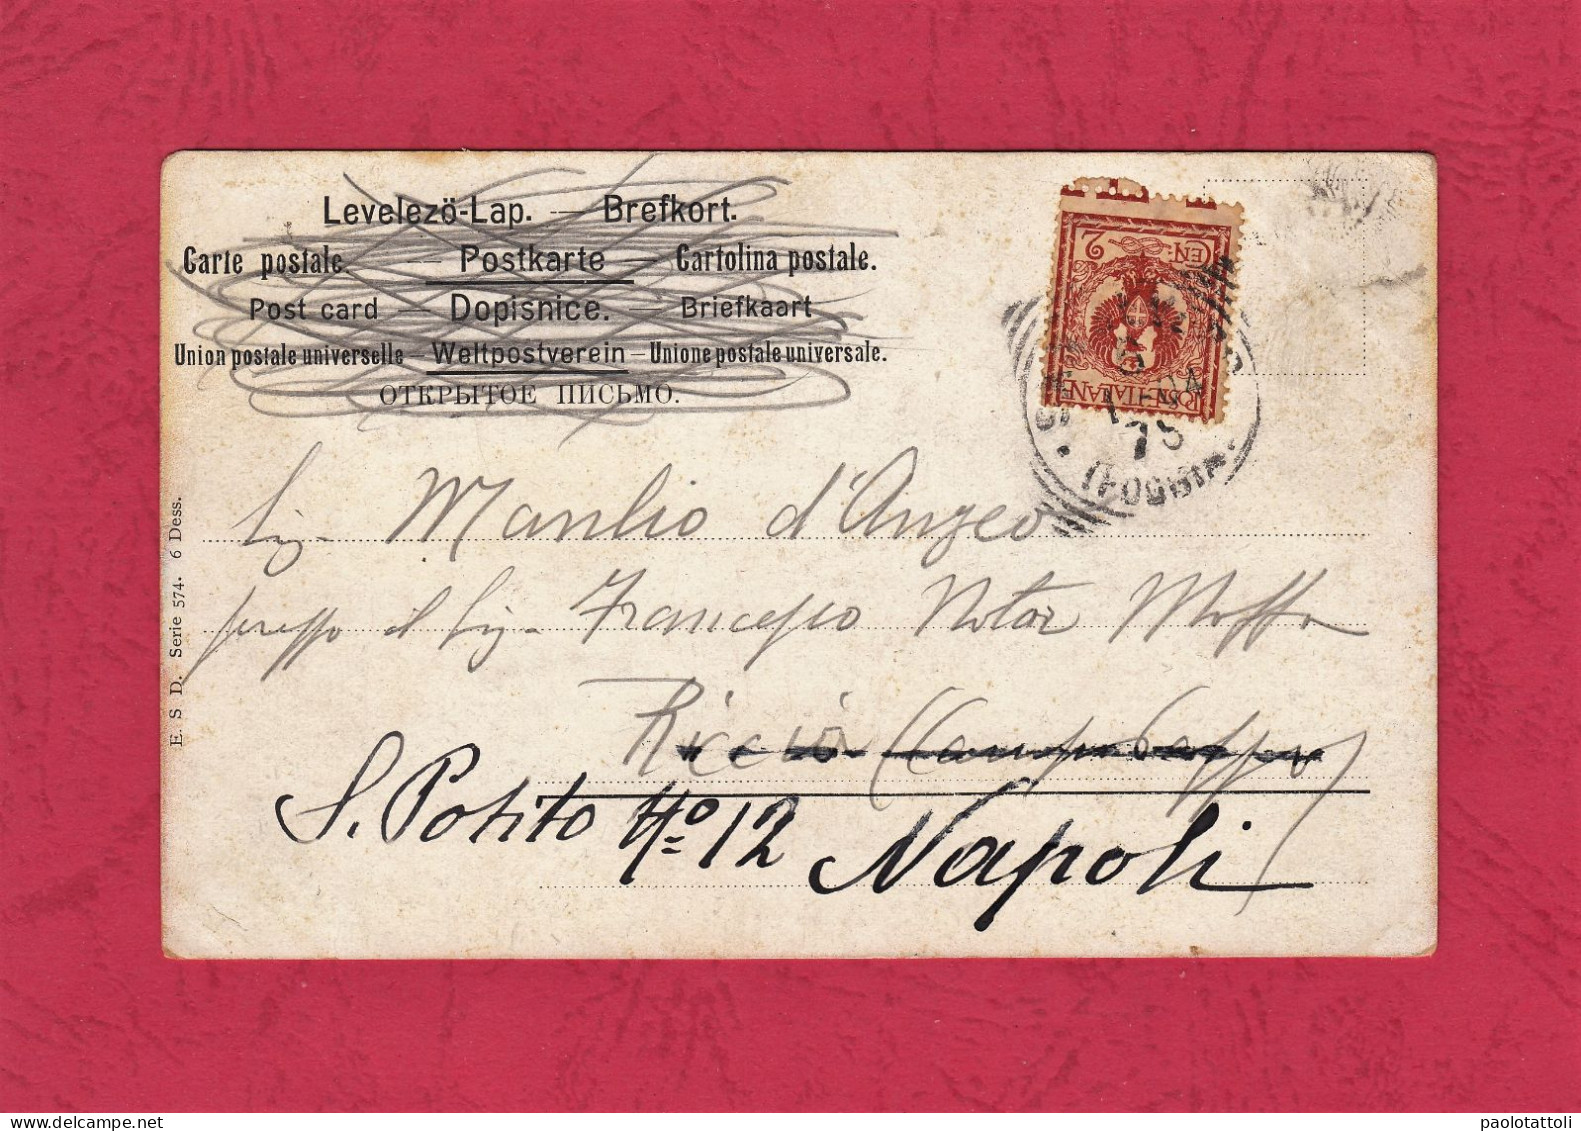 Levelezö-Lap. — Brefkort.
Carte postale. — Postkarte — Cartolina postale.
Post card — Dopisnice. — Briefkaart
Union postale universelle — Weltpostverein — Unione postale universale.
ОТКРЫТОЕ ПИСЬМО.
CEN: 2
POSTE ITALIANE
(FOGGIA)
Sig. Manlio d'Angeo
presso il Sig. Francesco Notar Moffa
Riccia (Campobasso)
S. Potito No 12 Napoli
E. S. D. Serie 574. 6 Dess.
paolotattoli